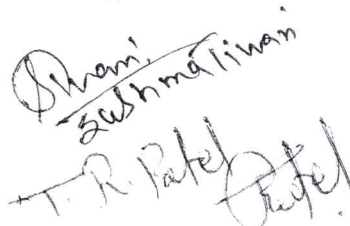 Tiwari
Sushma Tiwari
T. R. Patel Patel